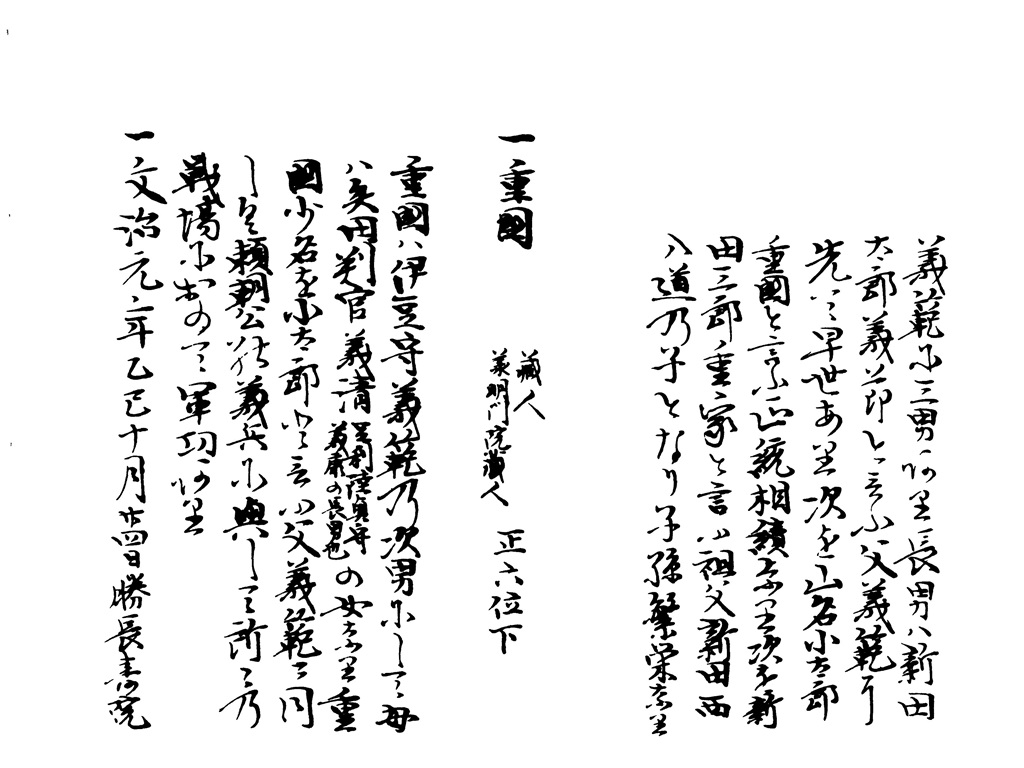 義範に三男あり長男ハ新田
太郎義節と言ふ父義範に
先して早世あり次を山名小太郎
重國と言ふ正統相續なり次を新
田三郎重家と言ふ祖父新田西
入道乃子となり子孫繁栄なり
一重國 蔵人 義明門院蔵人 正六位下
重國ハ伊豆守義範乃次男にして母
ハ矢田判官義清足利陸奥守義康の長男也の女なり重
國少名を小太郎と言ふ父義範と同
しく頼朝公の義兵に與して所々乃
戦場においの て軍功あり
一文治元年乙巳十月廿四日勝長寿院